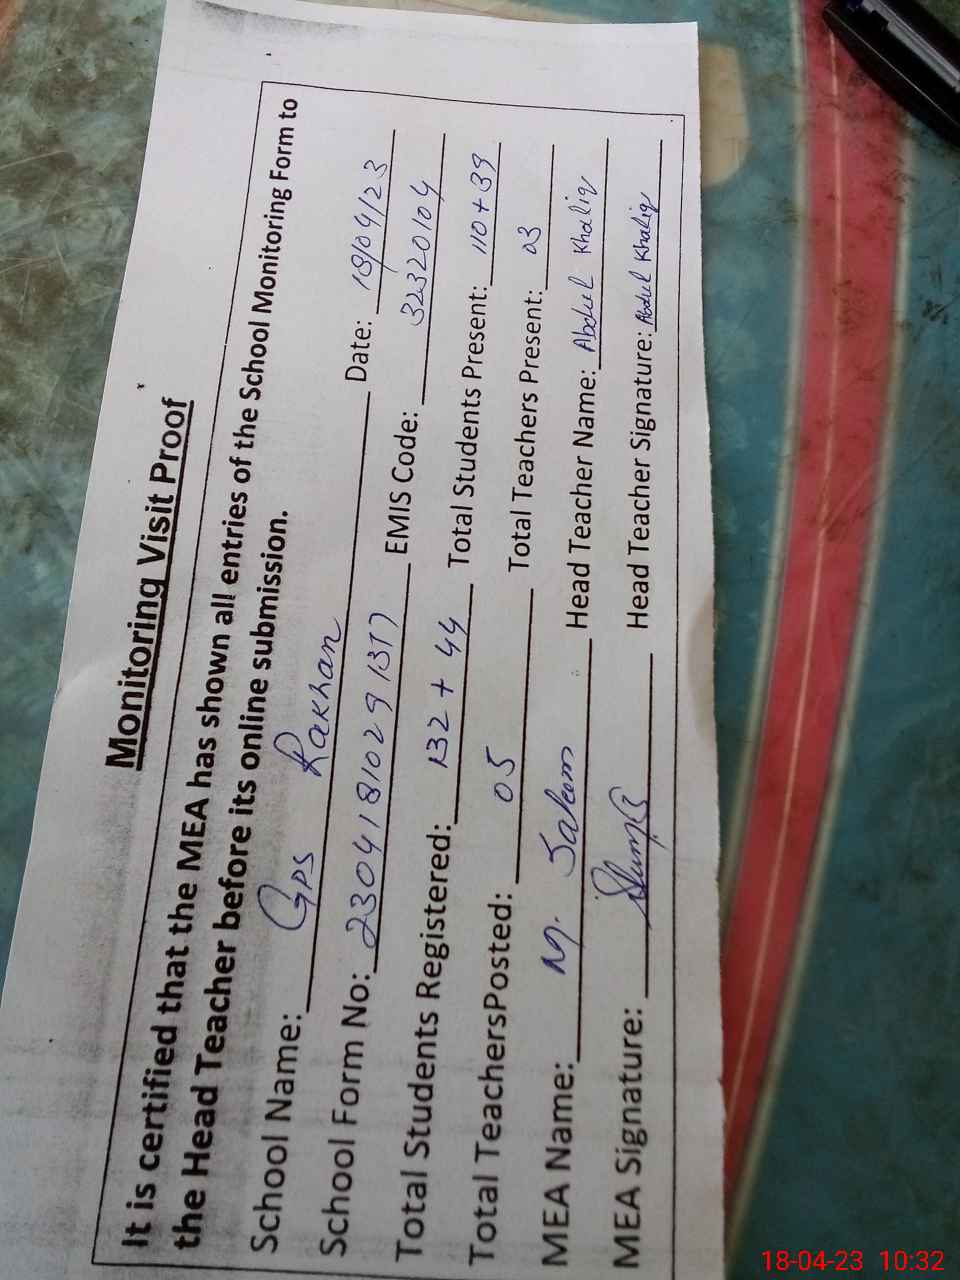 Monitoring Visit Proof
It is certified that the MEA has shown all entries of the School Monitoring Form to
the Head Teacher before its online submission.
School Name: GPS Rakhan Date: 18/04/23
School Form No: 23041810291317 EMIS Code: 32320104
Total Students Registered: 132 + 44 Total Students Present: 110 + 39
Total TeachersPosted: 05 Total Teachers Present: 03
MEA Name: M. Saleem Head Teacher Name: Abdul Khaliq
MEA Signature: Head Teacher Signature: Abdul Khaliq
18-04-23 10:32